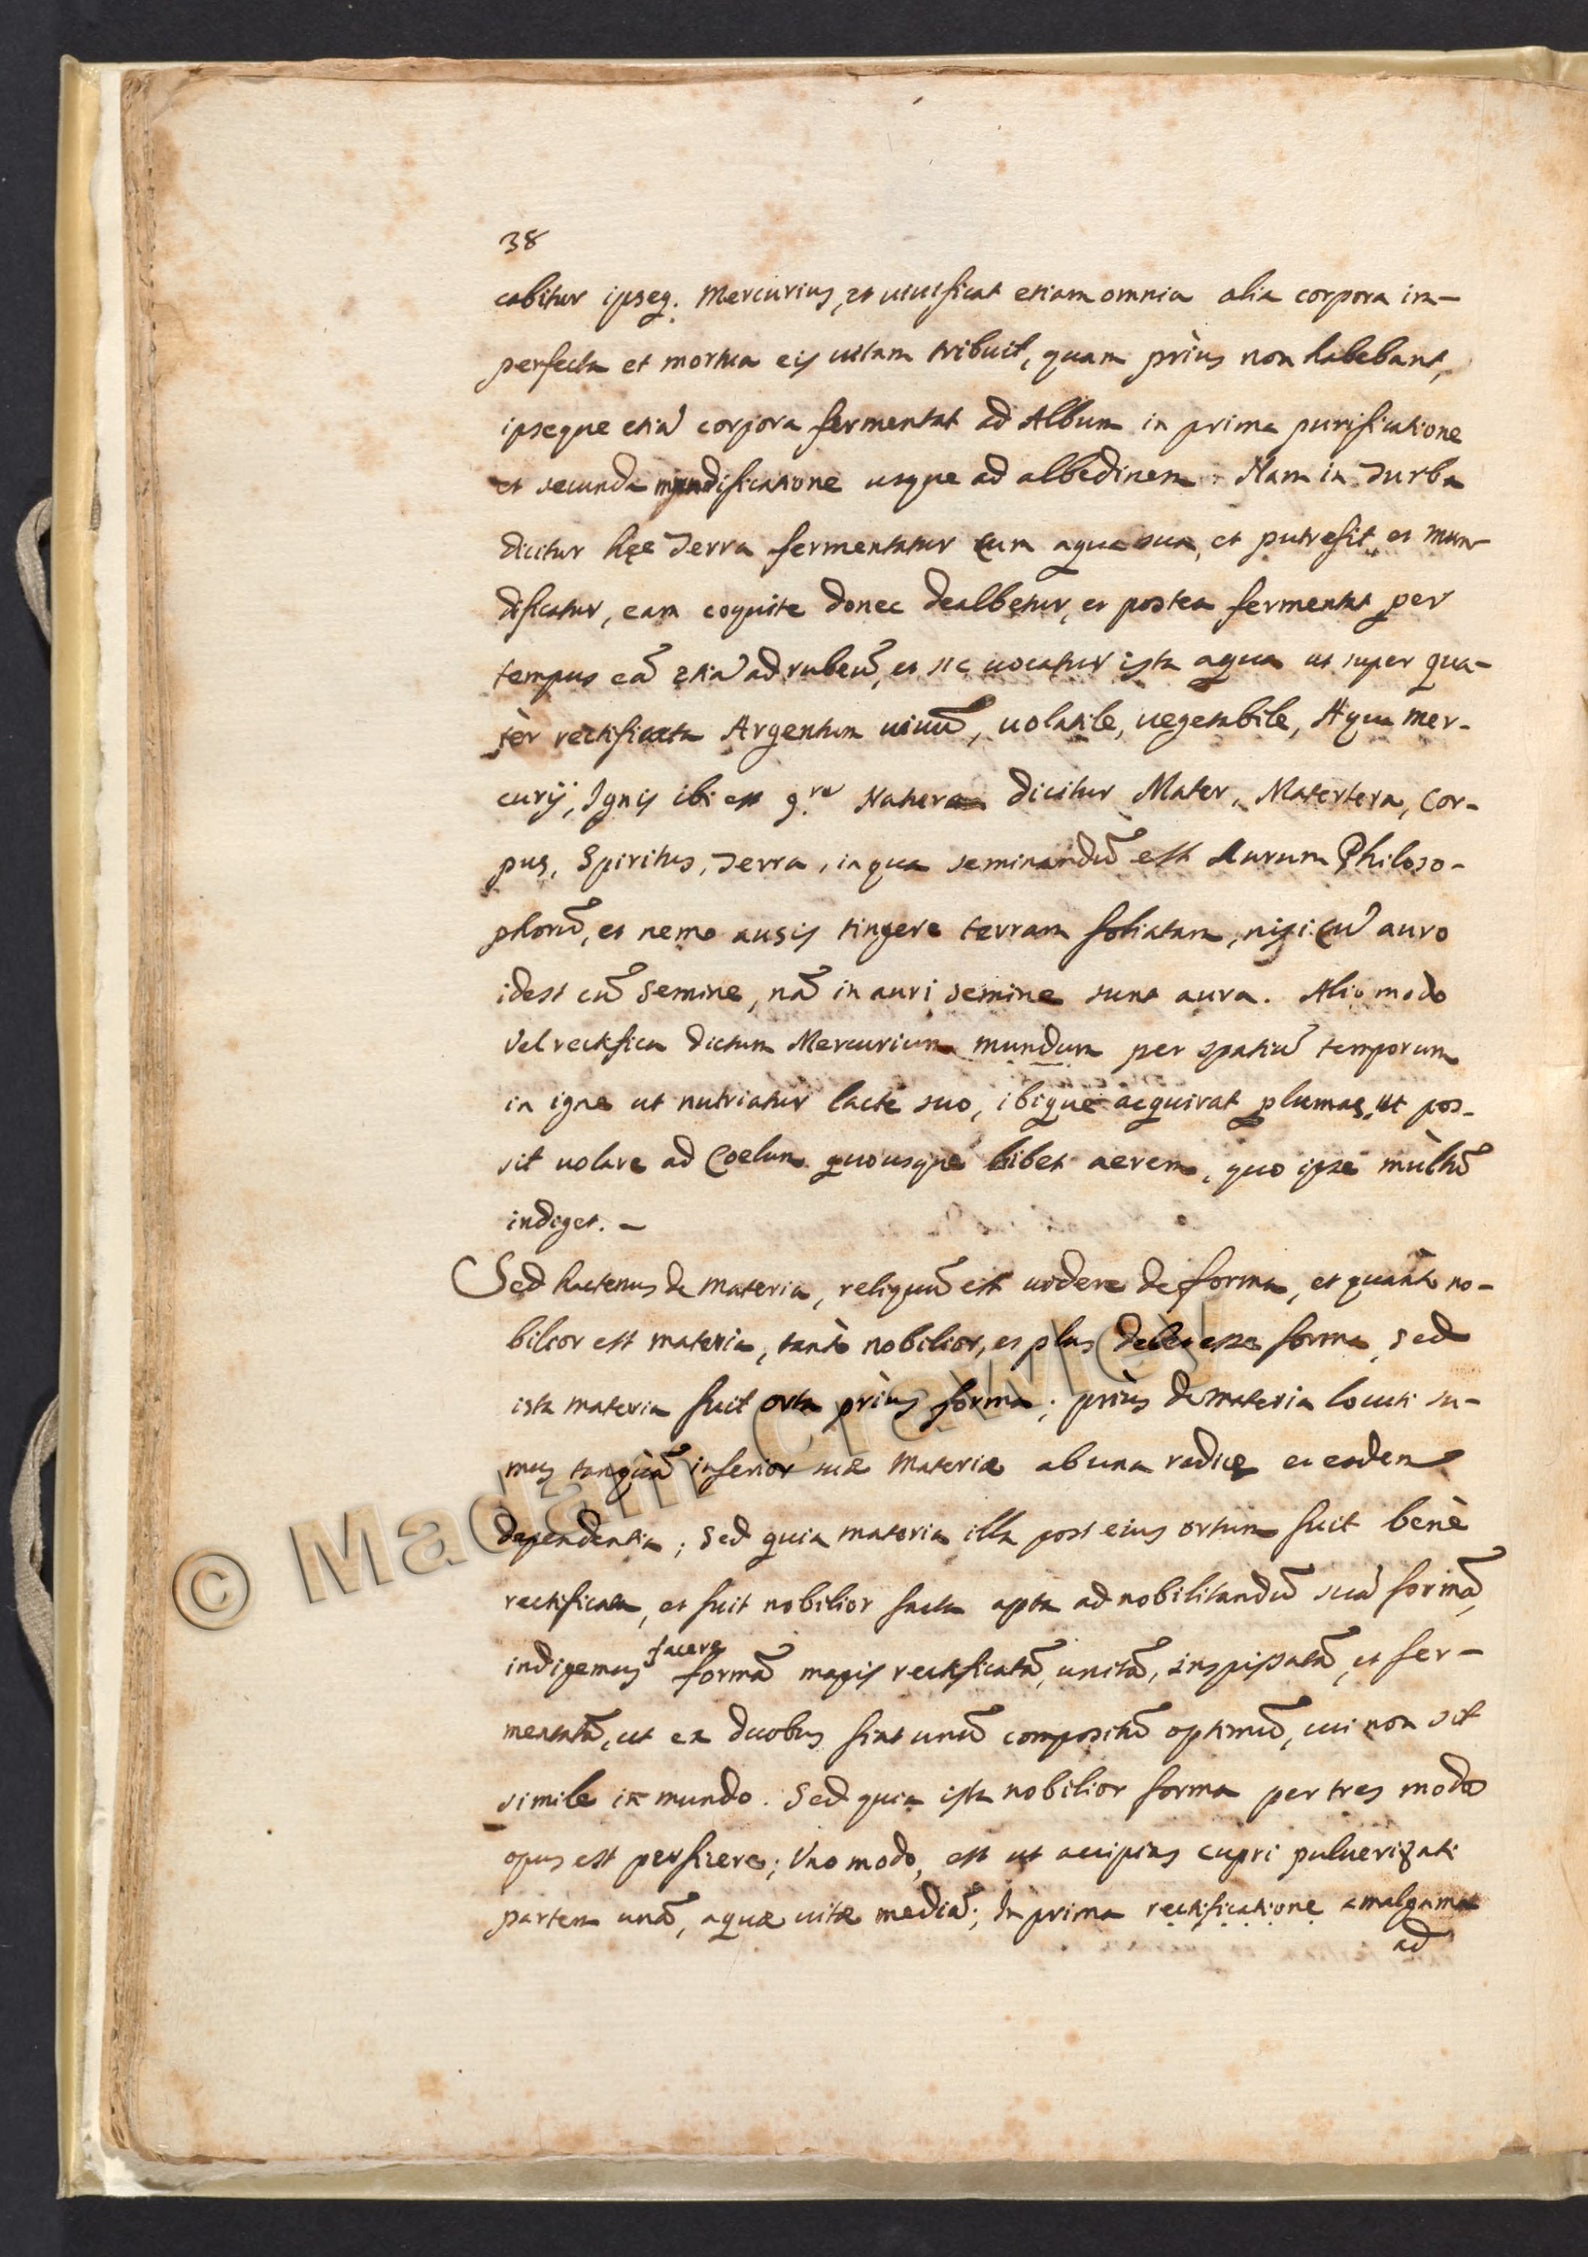 38
cabitur ipseq. Mercurius, et uiuificat etiam omnia alia corpora im-
perfecta et mortua eis uitam tribuit, quam prìus non habebant,
ipseque etiã corpora fermentat ad Album in prima purificatione
et secunda mundificatione usque ad albedinem. Nam in Turba
dicitur hęc Terra fermentatur cum aqua sua, et putrefit et mun-
dificatur, eam coquite donec dealbetur, et postea fermentat per
tempus eã etiã ad rubeũ, et sic uocatur ista aqua ut super qua-
tèr rectificata Argentum uiuũ, uolatile, uegetabile, Aqua Mer-
curij, Ignis ibi est Natura dicitur Mater, Matertera, Cor-
pus, Spiritus, Terra, in qua seminandũ est Aurum Philoso-
phorũ, et nemo ausis tingere terram foliatam, nisi cũ auro
idest cũ semine, nã in auri semine sunt aura. Alio modo
Vel rectifica dictum Mercurium mundum per spatiũ temporum
in igne ut nutriatur lacte suo, ibique acquirat plumas, ut pos-
sit uolare ad Coelum quousque bibet aerem, quo ipse mùltũ
indiget. –
Sed hactenus de materia, reliquũ est uidere de forma, et quantò no-
bilior est materia, tantò nobilior, et plus debet esse forma, sed
ista materia fuit orta prìus forma; prìus de materia locuti su-
mus tanquã inferior suæ materiæ ab una radice ea eadem
dependentia; sed quia materia illa post eius ortum fuit benè
rectificata, et fuit nobilior facta apta ad nobilitandũ suã formã,
indigemus facere formã magis rectificatã, unitã, inspissatã, et fer-
mentatã, ut ex duobus fiat unũ compositũ optimũ, cui non sit
simile in mundo. Sed quia ista nobilior forma per tres modos
opus est perficere; Vno modo, est ut accipias cupri puluerizati
partem unã, aquæ uitæ mediã; In prima rectificatione amalgamat
ad
© Madam Crawley